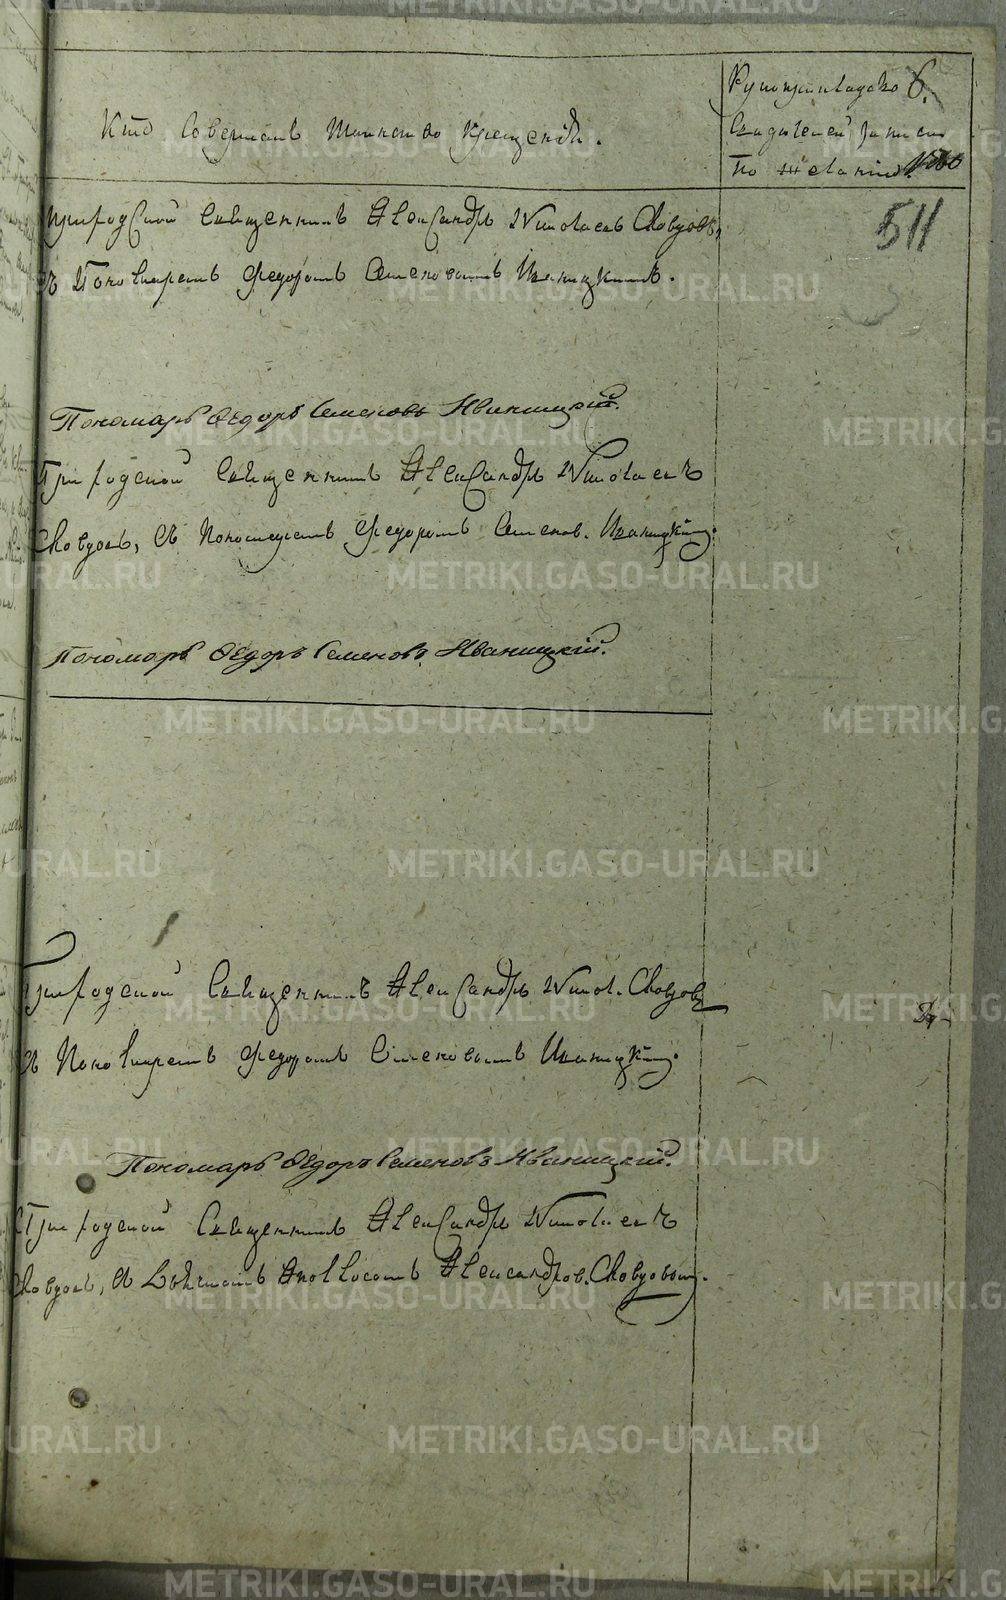 Кто совершалъ таинство крещенія.
Рукоприкладство
свидѣтелей записи
по желанію.
6.
511
Приходской Священникъ Александръ Николаевъ Сковцовъ,
съ Пономаремъ Федоромъ Семеновымъ Иваницкимъ.
Пономарь Ѳедоръ Семеновъ Иваницкій.
Приходской Священникъ Александръ Николаевъ
съ Пономаремъ Федоромъ Семенов. Иваницким.
Пономарь Ѳедоръ Семеновъ Иваницкій.
Приходской Священникъ Александръ Никол.
съ Пономаремъ Федоромъ Семеновымъ Иваницким.
Пономарь Ѳедоръ Семеновъ Иваницкій.
Приходской Священникъ Александръ Николаевъ
съ Александров.
METRIKI.GASO-URAL.RU